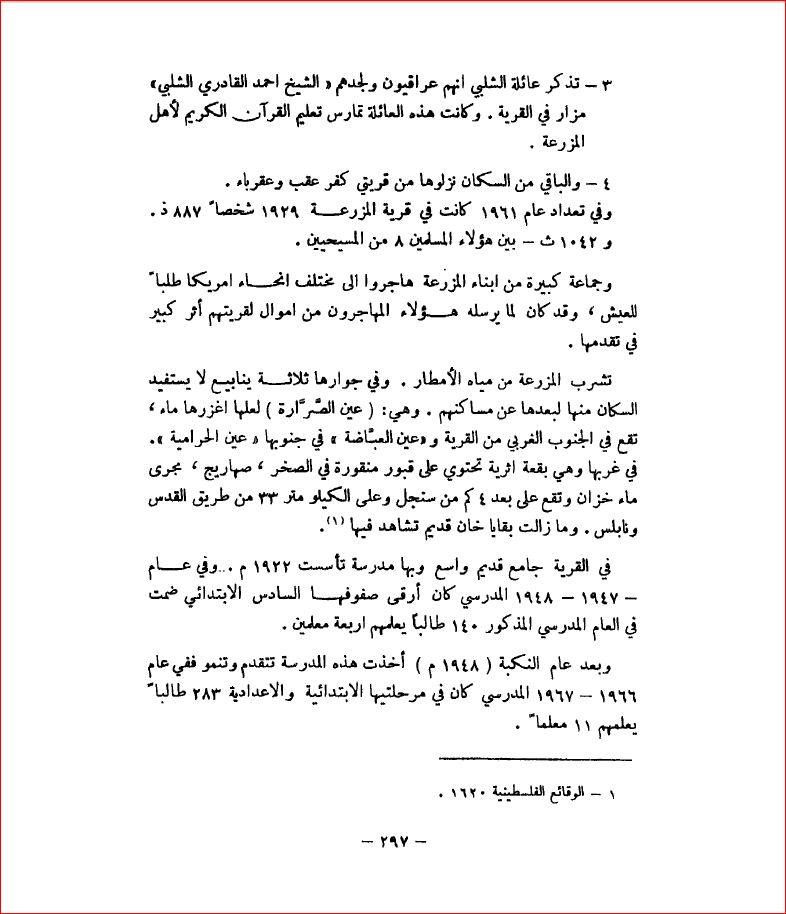 ٣ – تذكر عائلة الشلبي انهم عراقيون ولجدهم « الشيخ احمد القادري الشلبي»
مزار في القرية . وكانت هذه العائلة تمارس تعليم القرآن الكريم لأهل
المزرعة .
٤ – والباقي من السكان نزلوها من قريتي كفر عقب وعقرباء .
وفي تعداد عام ١٩٦١ كانت في قرية المزرعة ١٩٢٩ شخصاً ٨٨٧ ذ .
و ١٠٤٢ ث – بين هؤلاء المسلمين ٨ من المسيحيين .
وجماعة كبيرة من ابناء المزرعة هاجروا الى مختلف انحاء امريكا طلباً
للعيش ، وقد كان لما يرسله هؤلاء المهاجرون من اموال لقريتهم أثر كبير
في تقدمها .
تشرب المزرعة من مياه الأمطار . وفي جوارها ثلاثة ينابيع لا يستفيد
السكان منها لبعدها عن مساكنهم . وهي: ( عين الصَّرَّارة ) لعلها اغزرها ماء ،
تقع في الجنوب الغربي من القرية و «عين العبَّاضة » في جنوبها « عين الحرامية ».
في غربها وهي بقعة اثرية تحتوي على قبور منقورة في الصخر ، صهاريج ، مجرى
ماء خزان وتقع على بعد ٤ كم من سنجل وعلى الكيلو متر ٣٣ من طريق القدس
ونابلس . وما زالت بقايا خان قديم تشاهد فيها (١).
في القرية جامع قديم واسع وبها مدرسة تأسست ١٩٢٢ م ...وفي عام
– ١٩٤٧ – ١٩٤٨ المدرسي كان أرقى صفوفها السادس الابتدائي ضمت
في العام المدرسي المذكور ١٤٠ طالباً يعلمهم اربعة معلمين .
وبعد عام النكبة ( ١٩٤٨ م ) أخذت هذه المدرسة تتقدم وتنمو ففي عام
١٩٦٦ – ١٩٦٧ المدرسي كان في مرحلتيها الابتدائية والاعدادية ٢٨٣ طالباً
يعلمهم ١١ معلماً .
١ – الوقائع الفلسطينية ١٦٢٠ .
– ٢٩٧ –